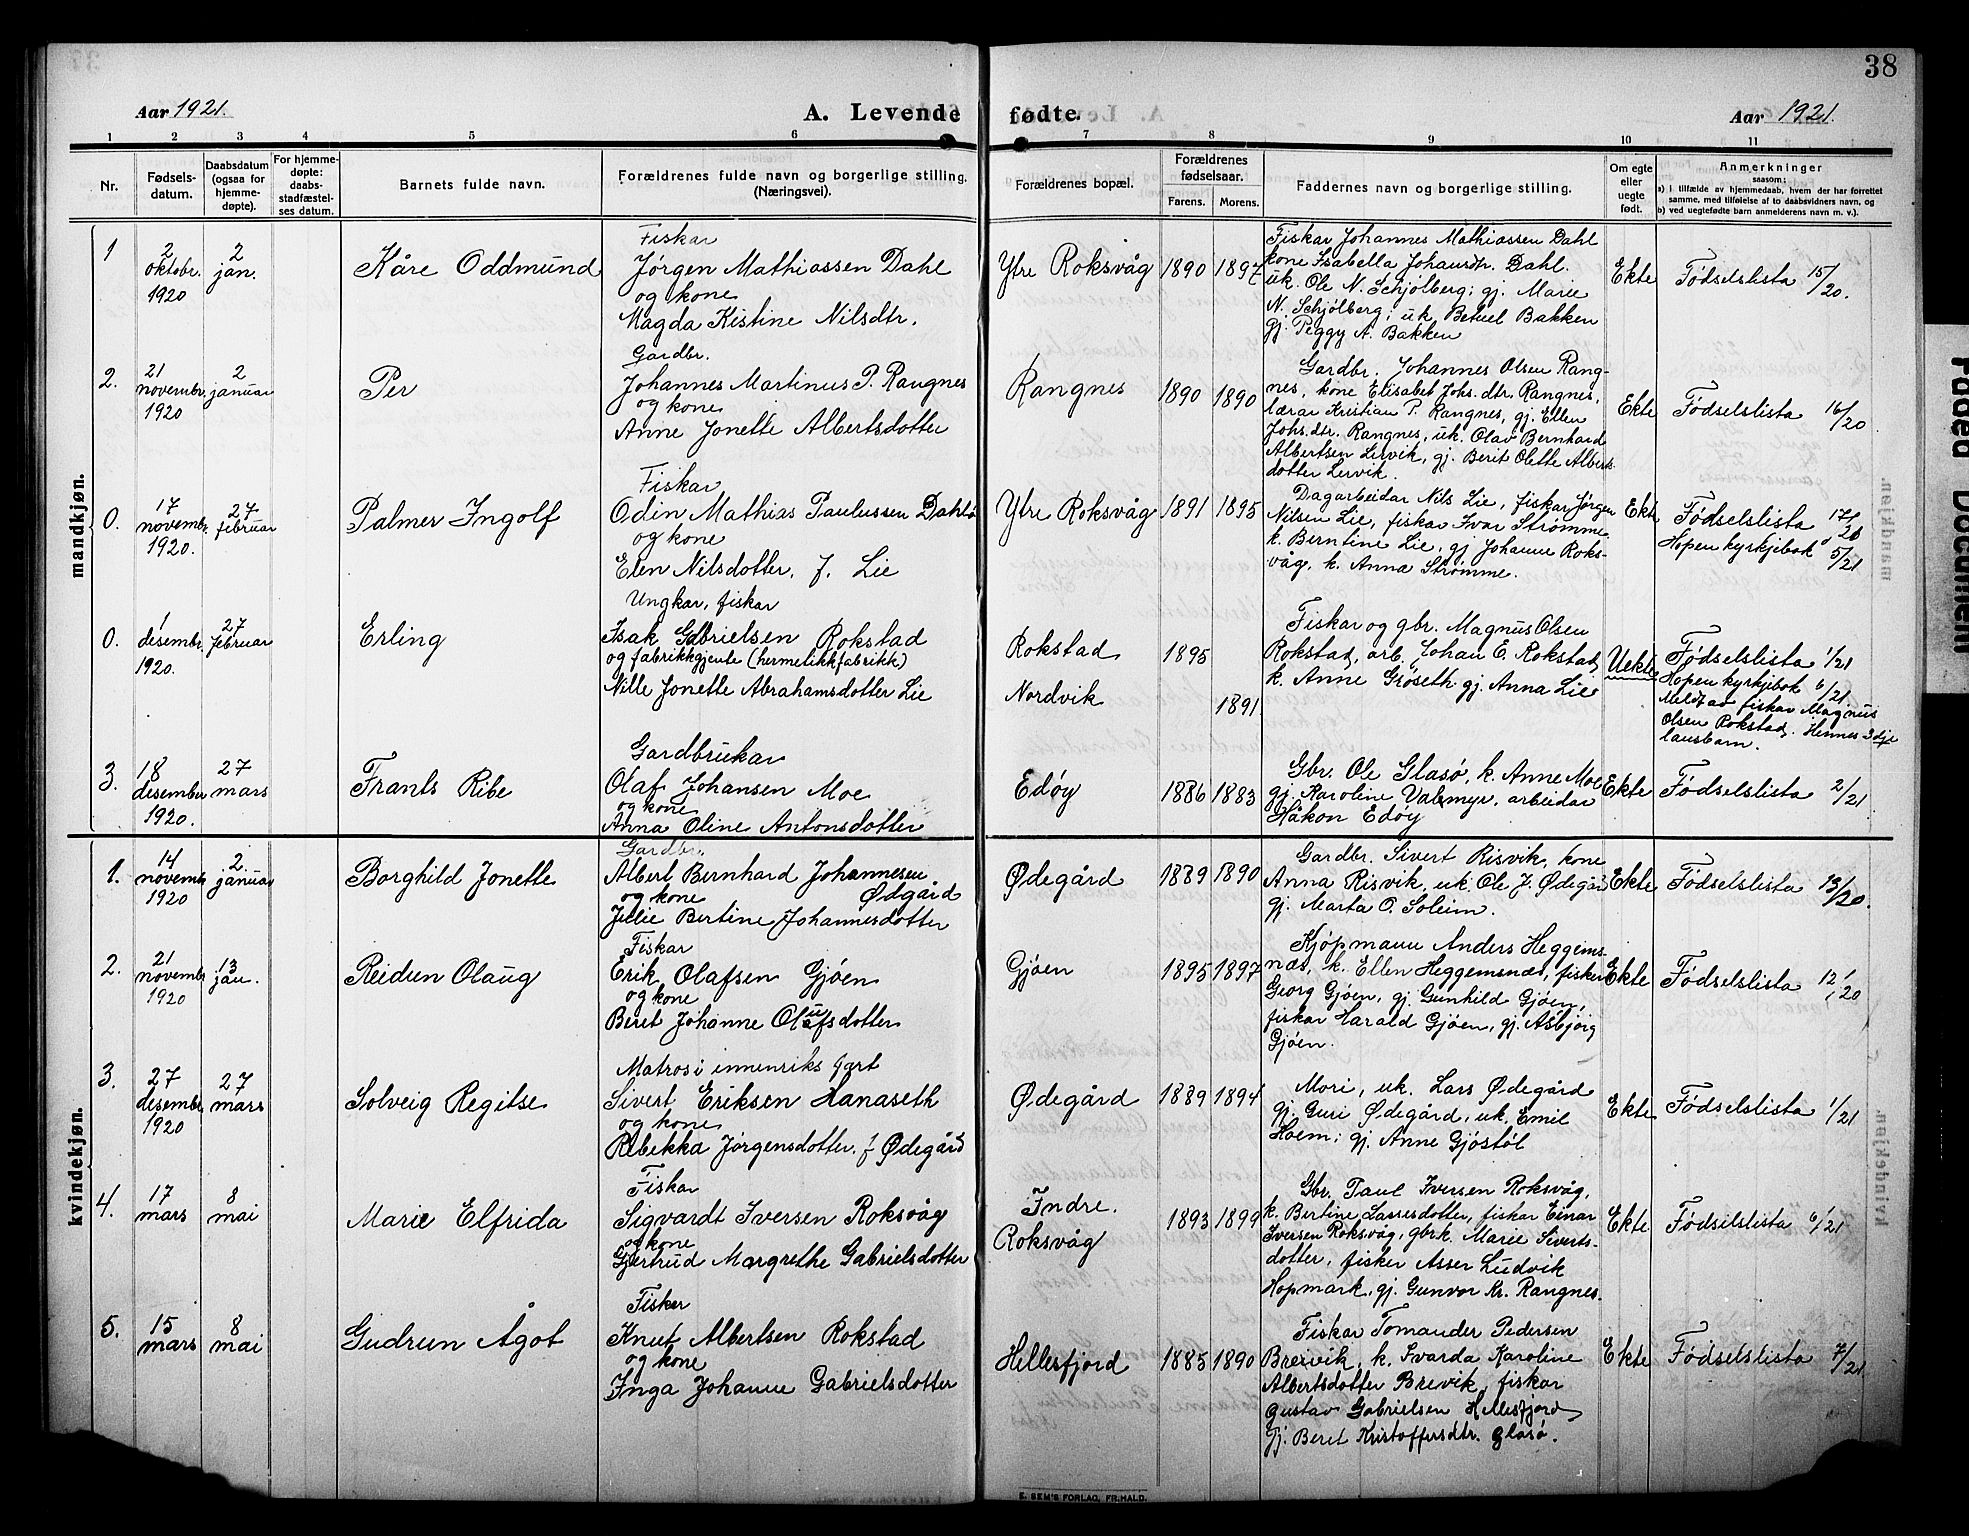 38
Aar 1921.
A. Levende fødte.
Aar 1921.
1 2 3 4 5 6 7 8 9 10 11
Nr.
Fødsels-
datum.
Daabsdatum
(ogsaa for
hjemme-
døpte).
For hjemme-
døpte:
daabs-
stadfæstel-
ses datum.
Barnets fulde navn.
Forældrenes fulde navn og borgerlige stilling.
(Næringsvei).
Forældrenes bopæl.
Forældrenes
fødselsaar.
Farens. Morens.
Faddernes navn og borgerlige stilling.
Om egte
eller
uegte
født.
Anmerkninger
saasom:
a) I tilfælde av hjemmedaab, hvem der har forrettet
samme, med tilføielse af to daabsvidners navn, og
b) ved uegtefødte barn anmelderens navn m. v.).
mandkjøn.
1
2
oktobr.
1920
2
jan.
Kåre Oddmund
Fiskar
Jørgen Mathiassen Dahl
og kone
Magda Kistine Nilsdtr.
Ytre Roksvåg
1890
1897
Fiskar Johannes Mathiassen Dahl
kone Isabella Johansdtr. Dahl.
uk. Ole N. Schjølberg; gj. Marie
N. Schjølberg; uk. Betuel Bakken
gj. Peggy A. Bakken
Ekte
Fødselslista 15/20.
2.
21
novembr.
1920
2
januar
Per
Gardbr.
Johannes Martinus P. Rangnes
og kone
Anne Jonette Albertsdotter
Rangnes
1890
1890
Gardbr. Johannes Olsen Rang-
nes, kone Elisabet Johs.dtr. Rangnes,
lærar Kristian P. Rangnes, gj. Ellen
Johs.dtr. Rangnes, uk. Olav Bernhard
Albertsen Lervik, gj. Berit Olette Alberts-
dotter Lervik.
Ekte
Fødselslista 16/20
0.
17
novembr.
1920.
27
februar
Palmer Ingolf
Fiskar
Odin Mathias Paulussen Dahl
og kone
Elen Nilsdotter, f. Lie
Ytre Roksvåg
1891
1895
Dagarbeidar Nils Lie, fiskar Jørgen
Nilsen Lie, fiskar Ivar Strømme
k. Berntine Lie, gj Johanne Roks-
våg, k. Anna Strømme.
Ekte
Fødselslista 17/20
Hopen kyrkjebok 5/21
0.
1
desembr.
1920.
27
februar
Erling
Ungkar, fiskar
Isak Gabrielsen Rokstad
og fabrikkgjente (hermetikkfabrikk)
Nille Jonette Abrahamsdotter Lie
Rokstad
Nordvik
1895
1891.
Fiskar og gbr. Magnus Olsen
Rokstad, arb. Johan E. Rokstad,
k. Anne Grøseth gj. Anna Lie
Uekte
Fødselslista 1/21
Hopen kyrkjebok 6/21
Meldt av fiskar Magnus
Olsen Rokstad. Hennes 3dje
lausbarn.
3.
18
desember
1920.
27
mars
Frants Ribe
Gardbrukar
Olaf Johansen Moe
og kone
Anna Oline Antonsdotter
Edøy
1886
1883
Gbr. Ole Glasø, k. Anne Moe
gj. Karoline Valsmyr, arbeidar
Håkon Edøy
Ekte
Fødselslista 2/21
kvindekjøn.
1.
14
novembr
1920
2
januar
Borghild Jonette
Gardbr.
Albert Bernhard Johannesen
og kone Ødegård
Jellie Bertine Johannesdotter
Ødegård
1889
1890
Gardbr. Sivert Risvik, kone
Anna Risvik, uk. Ole J. Ødegård
gj. Marta O. Soleim.
Ekte
Fødselslista 13/20.
2.
21
novembr
1920
13
jan.
Reidun Olaug
Fiskar
Erik Olafsen Gjøen
og kone
Beret Johanne Olufsdotter
Gjøen
1895
1897
Kjøpmann Anders Heggems-
næs, k. Ellen Heggemsnæs, fisker
Georg Gjøen, gj. Gunhild Gjøen,
fiskar Harald Gjøen, gj. Asbjørg
Gjøen.
Ekte
Fødselslista 12/20
3.
27
desembr
1920
27
mars
Solveig Regitse
Matros i innenriks fart
Sivert Eriksen Hanaseth
og kone
Rebekka Jørgensdotter, f Ødegård
Ødegård
1889
1894
Mori, uk. Lars Ødegård
gj. Guri Ødegård, uk. Emil
Hoem; gj. Anne Gjøstøl
Ekte
Fødselslista 1/21
4.
17
mars
8
mai
Marie Elfrida
Fiskar
Sigvardt Iversen Roksvåg
og kone
Gjertrud Margrethe Gabrielsdotter
Indre.
Roksvåg
1893
1899
Gbr. Paul Iversen Roksvåg,
k. Bertine Lassesdotter, fiskar Einar
Iversen Roksvåg, gbrk. Marie Siverts-
dotter, fisker Asser Ludvik
Hopmark, gj. Gunvor Kr. Rangnes.
Ekte
Fødselslista 6/21
5.
15
mars
8
mai
Gudrun Ågot
Fisker
Knut Albertsen Rokstad
og kone
Inga Johanne Gabrielsdotter
Hellesfjord
1885
1890
Fiskar Tomander Pedersen
Breivik, k. Svarda Karoline
Albertsdotter Brevik, fiskar
Gustav Gabrielsen Hellesfjord
gj. Beret Kristoffersdtr. Glasø.
Ekte
Fødselslista 7/21
E. SEM'S FORLAG, FR.HALD.
Faded Document